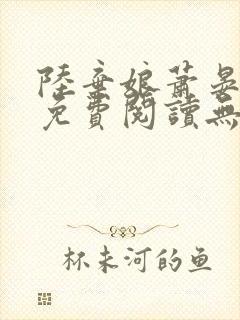 陸棄娘蕭晏
免費閱讀無
杯未河的鱼